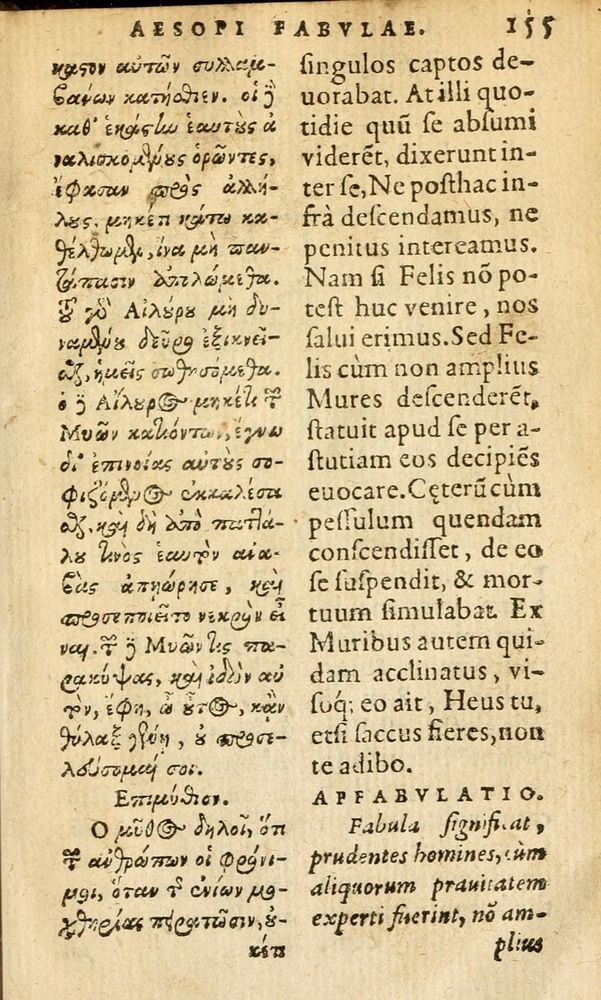 AESOPI FABVLAE. 155
καςον αὐτῶν συλλαμ-
βάνων κατήσθιεν. οἱ δὲ
καθ' ἑκάςτω ἑαυτοὺς ἀ
ναλισκομένους ὁρῶντες,
ἔφασαν πρὸς ἀλλή-
λους, μηκέτι κάτω κα-
θέλθωμεν, ἵνα μὴ παν-
τάπασιν ἀπολώμεθα.
τοῦ γὸ Αἰλούρου μὴ δυ-
ναμένου δεῦρο ἐξικνεῖ-
σθ, ἡμεῖς σωθησόμεθα.
ὁ δὲ Αἴλουρος μηκέτι τῶν
Μυῶν κατιόντων, ἔγνω
δι' ἐπινοίας αὐτοὺς σο-
φιζόμενος ἐκκαλέσα
σθ, καὶ δὴ ἀπὸ παττά-
λου τινὸς ἑαυτὸν ἀνα-
βὰς ἀπηώρησε, καὶ
προσεποιεῖτο νεκρὸν εἶ
ναι. τῶν δὲ Μυῶν τις πα-
ρακύψας, καὶ ἰδὼν αὐ
τὸν, ἔφη, ὦ οὗτος, κἂν
θύλαξ γένῃ, οὐ προσε-
λεύσομαί σοι.
Επιμύθιον.
Ο μῦθος δηλοῖ, ὅτι
τῶν ἀνθρώπων οἱ φρόνι-
μοι, ὅταν τῆς ἐνίων μο-
χθηρίας πειραθῶσιν, οὐ-
κέτι
singulos captos de-
uorabat. At illi quo-
tidie quū se absumi
viderēt, dixerunt in-
ter se, Ne posthac in-
frà descendamus, ne
penitus intereamus.
Nam si Felis nō po-
test huc venire, nos
salui erimus. Sed Fe-
lis cùm non amplius
Mures descenderēt,
statuit apud se per a-
stutiam eos decipiēs
euocare. Cęterū cùm
pessulum quendam
conscendisset, de eo
se suspendit, & mor-
tuum simulabat. Ex
Muribus autem qui-
dam acclinatus, vi-
soq; eo ait, Heus tu,
etsi saccus fieres, non
te adibo.
AFFABVLATIO.
Fabula significat,
prudentes homines, cùm
aliquorum prauitatem
experti fuerint, nō am-
plius